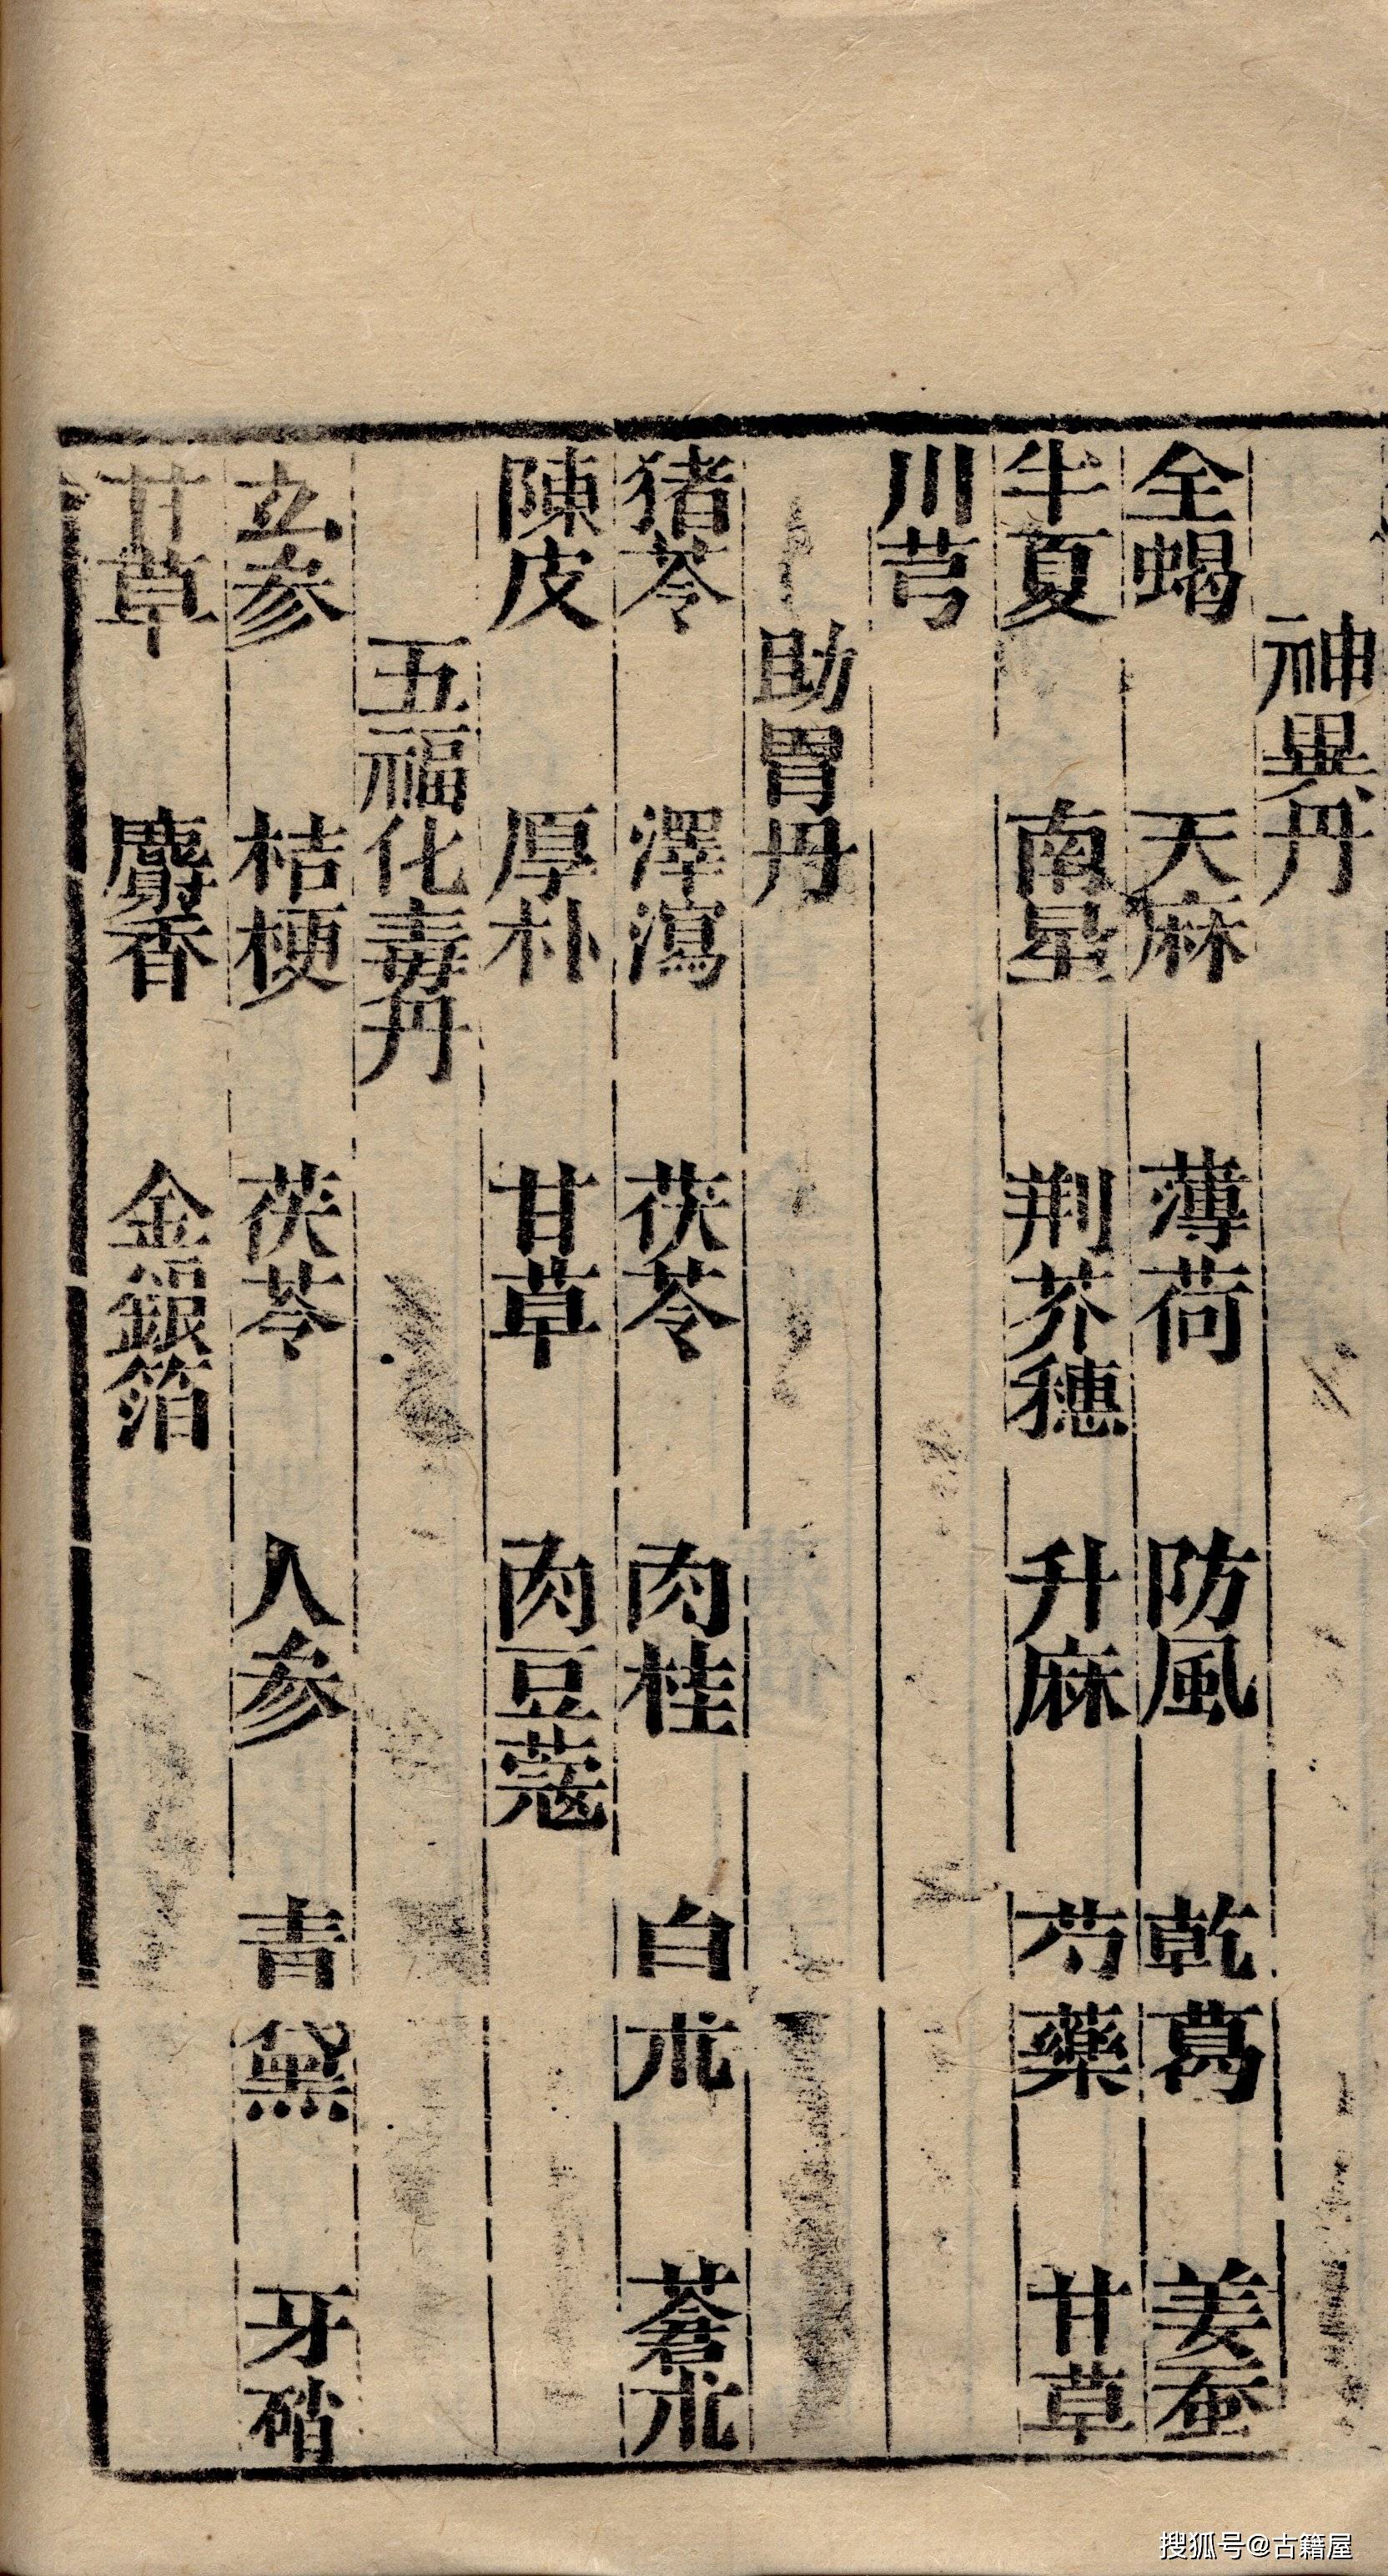 神異丹
全蝎 天麻 薄荷 防風 乾葛 姜蚕
半夏 南星 荆芥穗 升麻 芍藥 甘草
川芎
助胃丹
猪苓 澤瀉 茯苓 肉桂 白朮 蒼朮
陳皮 厚朴 甘草 肉豆蔻
五福化毒丹
玄参 桔梗 茯苓 人参 青黛 牙硝
甘草 麝香 金銀箔
搜狐号@古籍屋